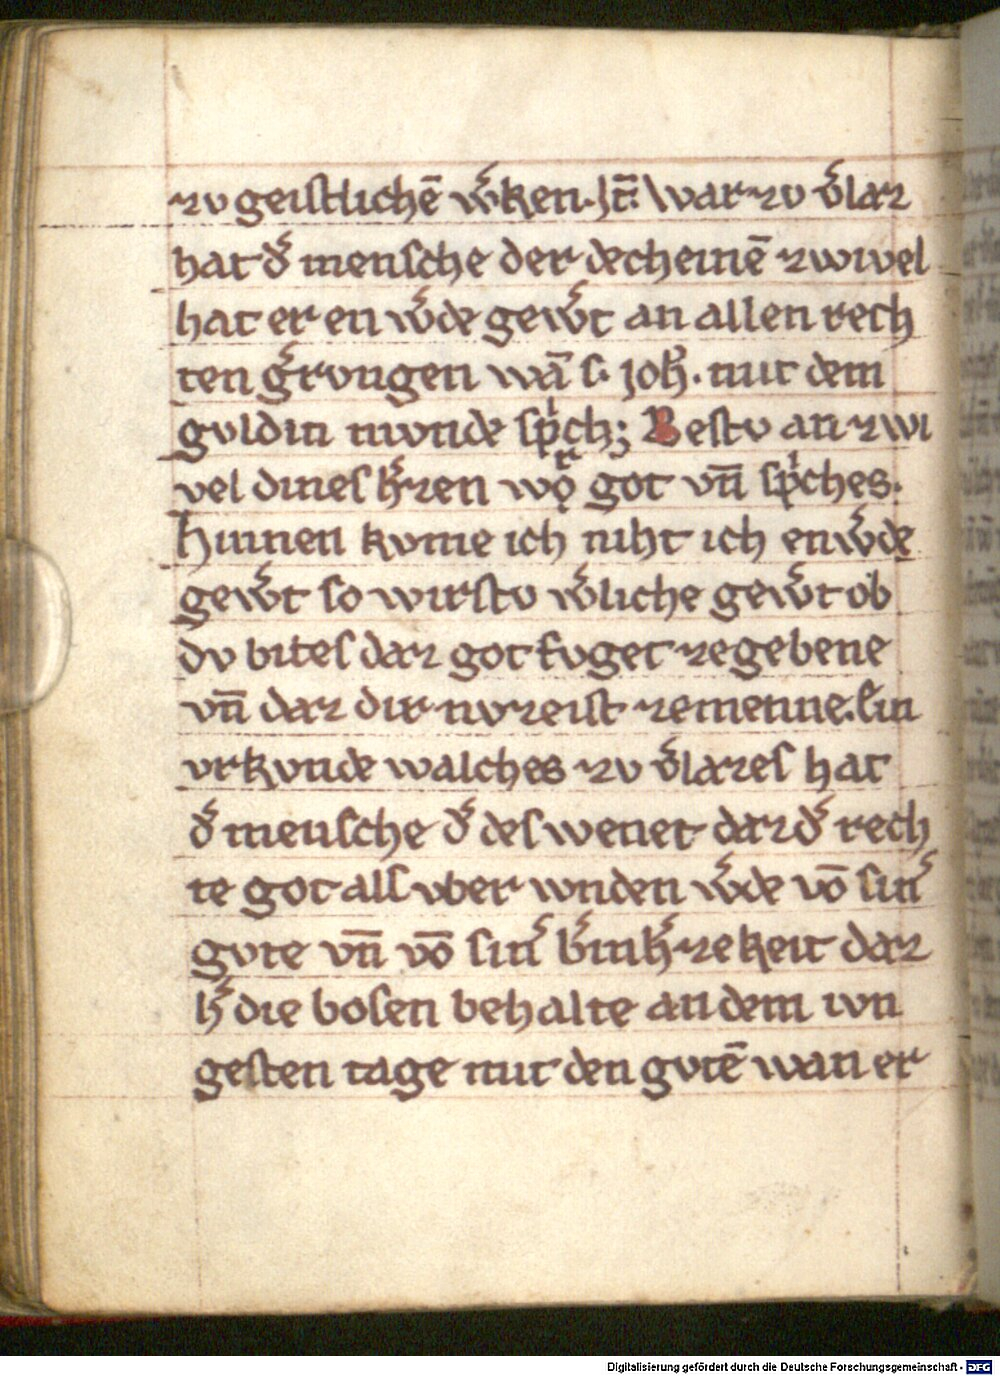 zv geistlichē w̾ken. Jt̄. Waz zv v̾laz
hat d̾ mensche der decheinē zwivel
hat er en w̾de gew̾t an allen rech
ten g̾rvngen wā s. joh̾. mit dem
gvldin mvnde sp̾ch; Bestv an zwi
vel dines h̾zen vor got vn̄ sp̾ches.
Hinnen kvme ich niht ich enw̾de
gew̾t so wirstv w̾liche gew̾t ob
dv bites daz got fvget zegebene
vn̄ daz dir nvzeist zemenne. Ein
vrkvnde walches zv v̾lazes hat
d̾ mensche d̾ des wenet daz d̾ rech
te got als vber wnden w̾de vō sin̾
gvte vn̄ vō sin̾ b̾mh̾zekeit daz
h̾ die bosen behalte an dem ivn
gesten tage mit den gvtē wan er
Digitalisierung gefördert durch die Deutsche Forschungsgemeinschaft - DFG